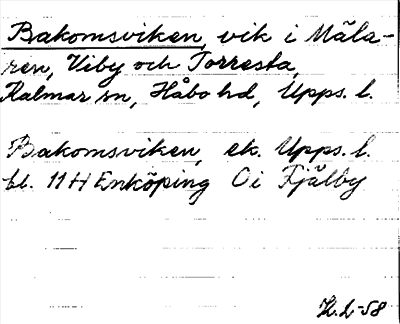 Bakomsviken, vik i Mäla-
ren, Viby och Torresta,
Kalmar sn, Håbo hd, Upps. l.
Bakomsviken, ek. Upps. l.
bl. 11 H Enköping 0 i Fjälby
-58